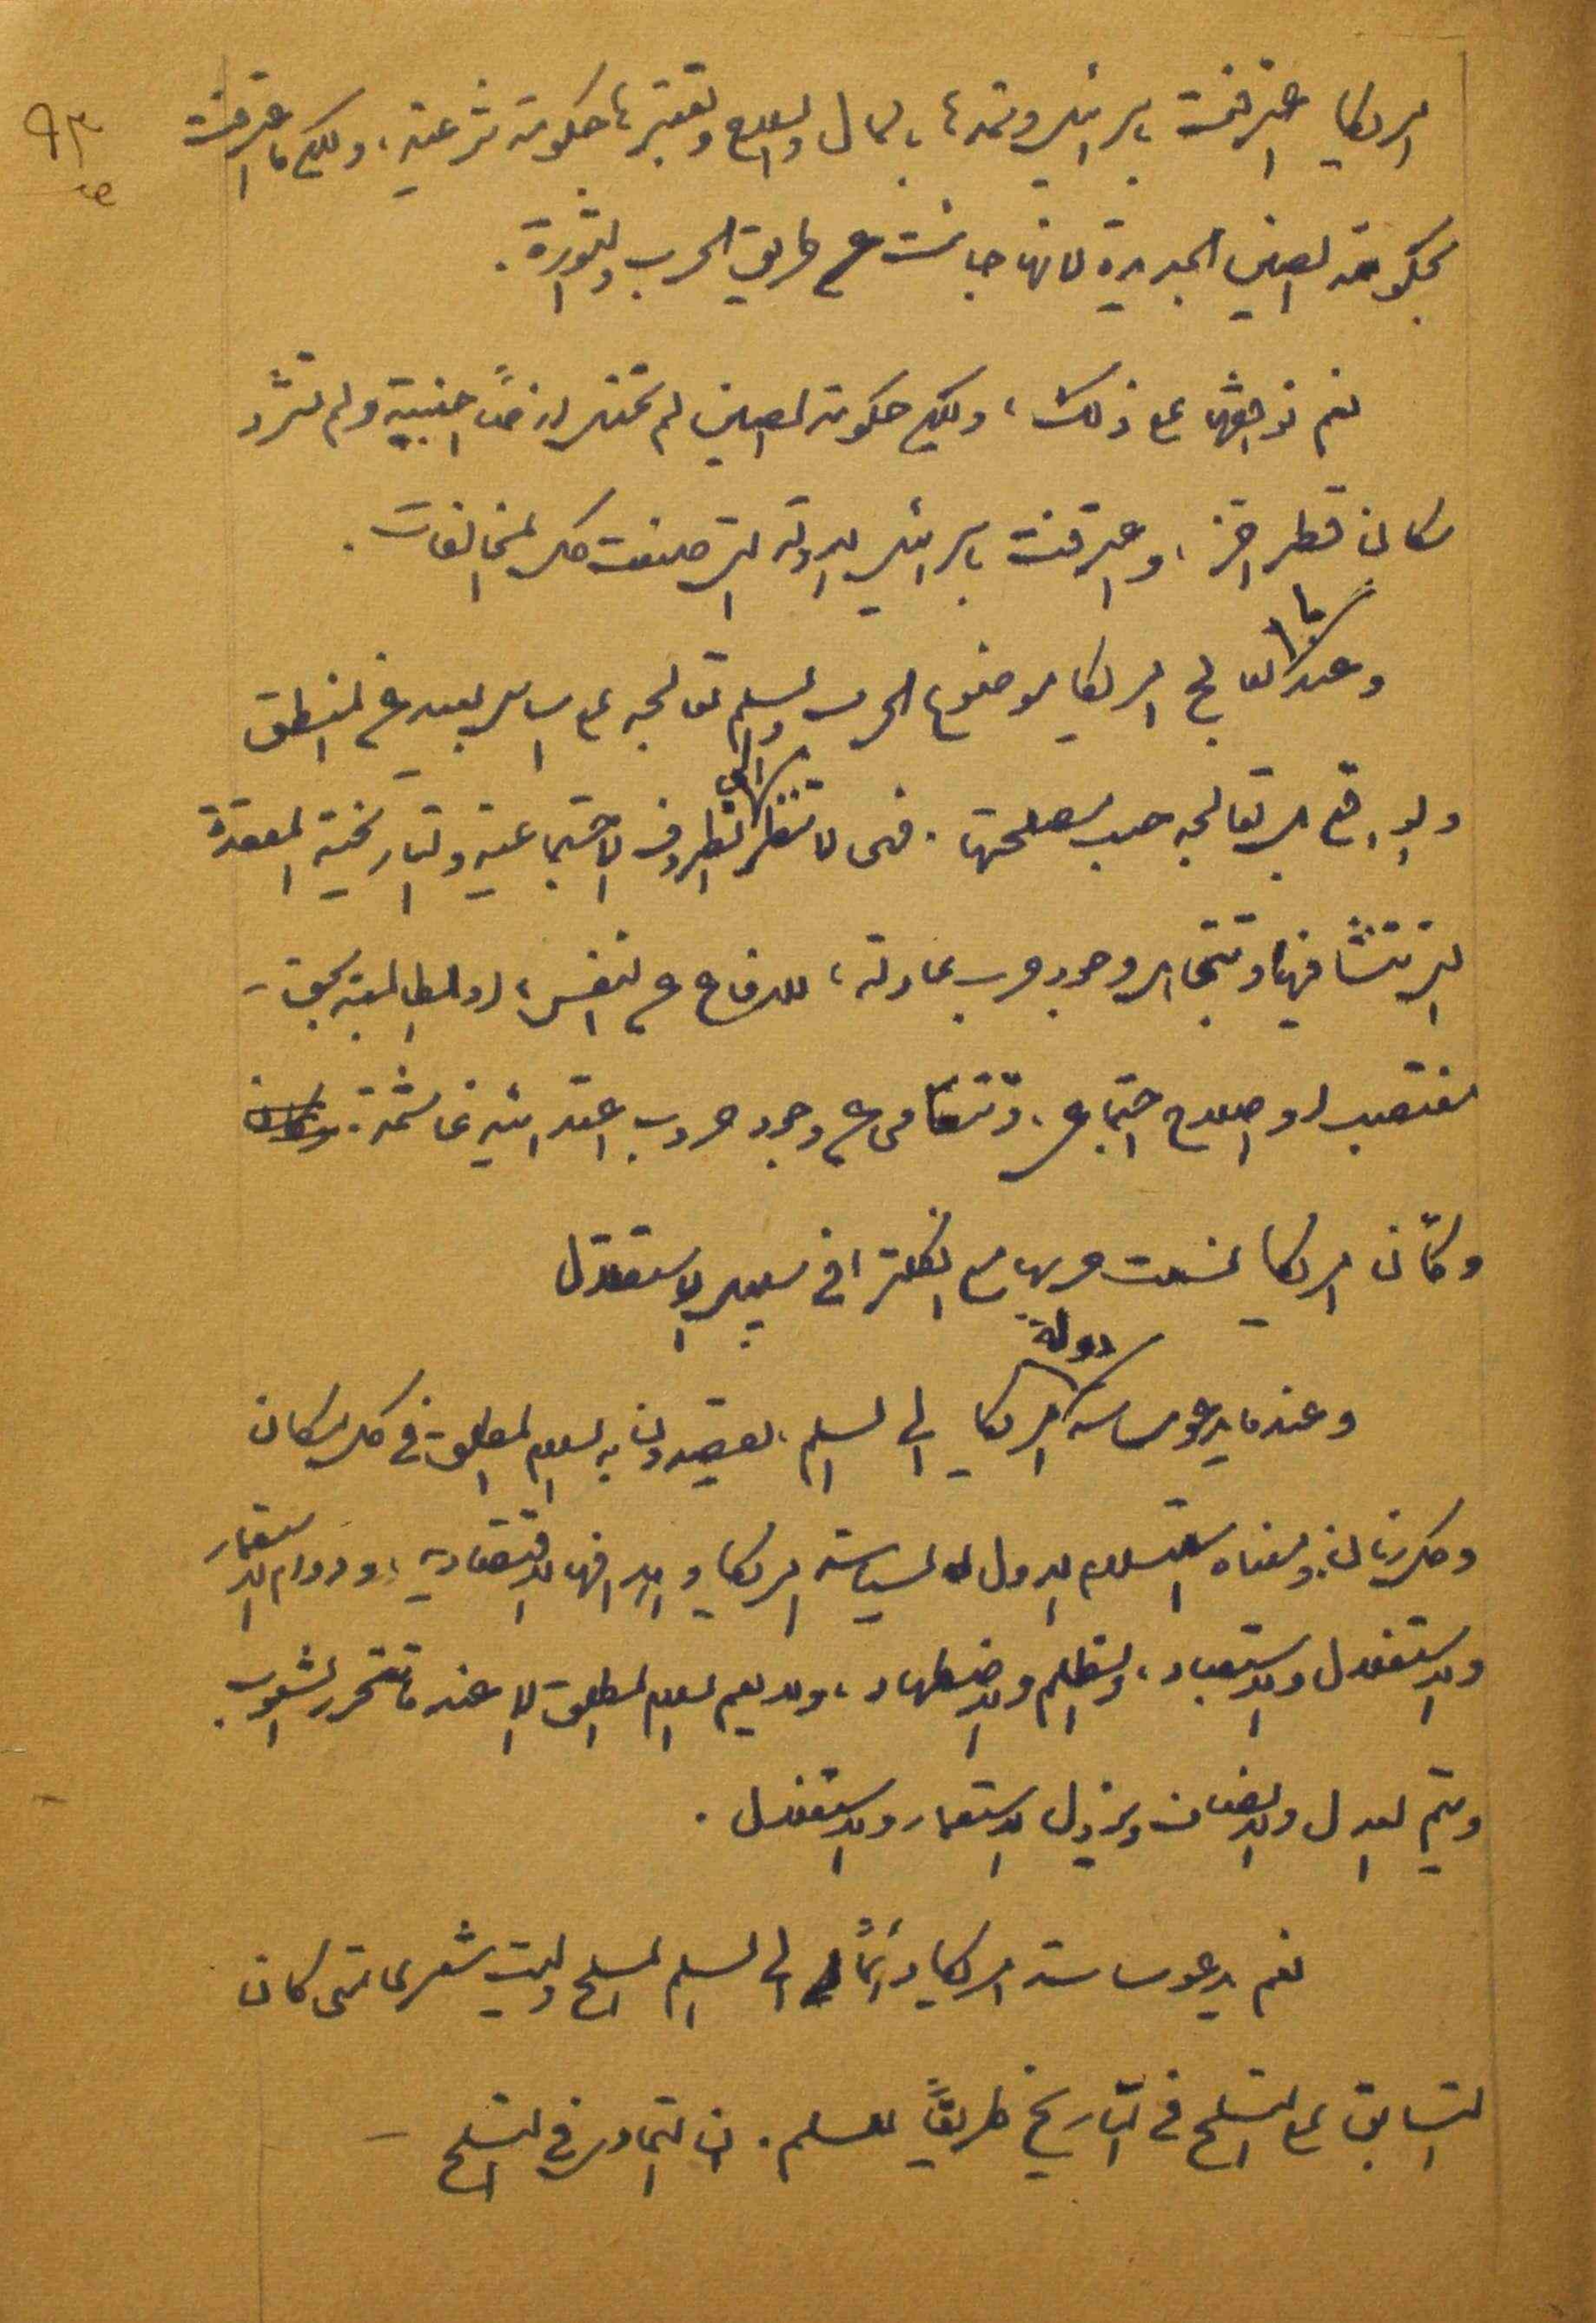 ٩٣
اميركا اعترفت باسرائيل وتمدها بالمال والسلاح وتعتبرها حكومة شرعية، ولكن ما اعترفت
بحكومة الصين الجديدة لانها جاءت عن طريق الحرب والثورة.
نعم نوافقها على ذلك، ولكن حكومة الصين لم تحتل ارضاً اجنبية ولم تشرد
سكان قطر آخر، واعترفت باسرائيل الدولة التي صنعت كل المخالفات.
وعندما تعالج اميركا موضوع الحرب والسلم تعالجه على اساس بعيد عن المنطق
والواقع بل تعالجه حسب مصلحتها. فهى لا تنظر الى الظروف الاجتماعية والتاريخية المعقدة
التي تنشأ فيها وتتجاهل وجود حرب عادلة، للدفاع عن النفس، او المطالبة بحق
مغتصب او اصلاح اجتماعي. وتتعامى عن وجود حروب اعتدائية غاشمة.
وكأن اميركا نسيت حربها مع انكلترا في سبيل الاستقلال
وعندما يدعو ساسة دولة اميركا الى السلم، يقصدون به السلام المطلق في كل مكان
وكل زمان ومعناه استسلام الدول لسياسة اميركا واهدافها الاقتصادية، ودوام الاستعمار
والاستغلال والاستعباد، والظلم والاضطهاد، ولا يعم السلام المطلق الا عندما تتحرر الشعوب
ويتم العدل والانصاف ويزول الاستعمار والاستغلال.
نعم يدعو ساسة اميركا دائماً الى السلم المسلح وليت شعري متى كان
التسابق على التسلح في التاريخ طريقاً للسلم. ان التمادي في التسلح